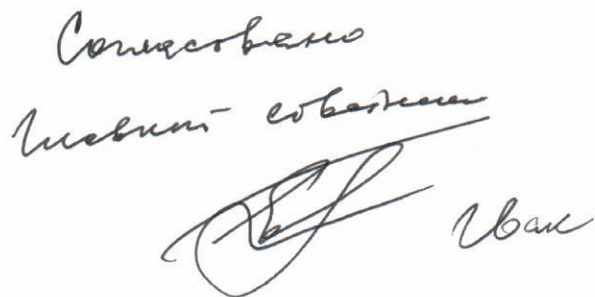 Согласовано
Главный советник